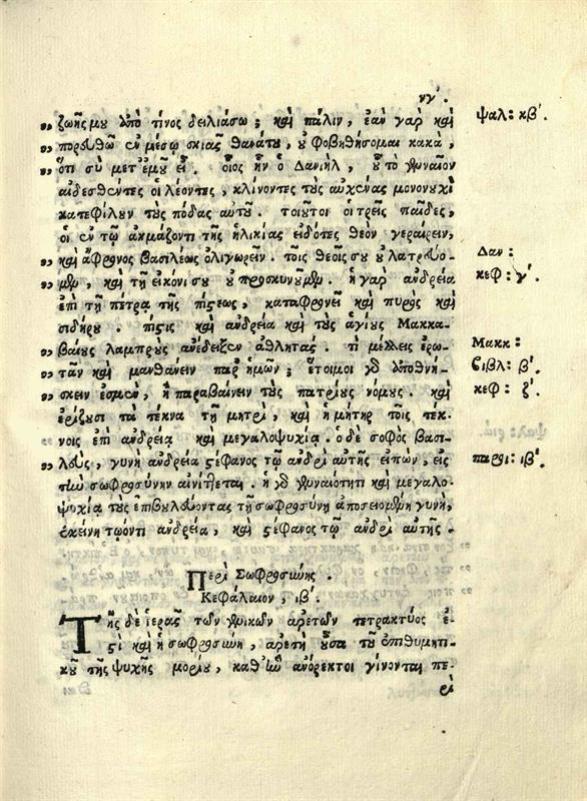 νγʹ.
ζωῆς μου ἀπὸ τίνος δειλιάσω; καὶ πάλιν, ἐὰν γαρ καὶ
ψαλ: κβʹ.
πορευθῶ ἐν μέσῳ σκιᾶς θανάτου, οὐ φοβηθήσομαι κακὰ,
ὅτι σὺ μετ' ἐμοῦ εἶ. οἷος ἦν ὁ Δανιὴλ, οὗ τὸ γενναῖον
αἰδεσθέντες οἱ λέοντες, κλίνοντες τοὺς αὐχένας μονονουχὶ
κατεφίλουν τοὺς πόδας αὐτοῦ. τοιοῦτοι οἱ τρεῖς παῖδες,
οἱ ἐν τῷ ἀκμάζοντι τῆς ἡλικίας εἰδότες θεὸν γεραίρειν,
καὶ ἄφρονος βασιλέως ὀλιγωρεῖν. τοῖς θεοῖς σου οὐ λατρεύο-
Δαν:
μεν, καὶ τῇ εἰκόνι σου οὐ προσκυνοῦμεν. ἡ γὰρ ἀνδρεία
κεφ: γʹ.
ἐπὶ τῇ πέτρα τῆς πίστεως, καταφρονεῖ καὶ πυρὸς καὶ
σιδήρου. πίστις καὶ ἀνδρεία καὶ τοὺς ἁγίους Μακκα-
βαίους λαμπροὺς ἀνέδειξεν ἀθλητάς. τί μέλλεις ἐρω-
Μακκ:
τᾶν καὶ μανθάνειν παρ' ἡμῶν; ἕτοιμοι γὰρ ἀποθνή-
βιβλ: βʹ.
σκειν ἐσμὲν, ἢ παραβαίνειν τοὺς πατρίους νόμους. καὶ
κεφ: ζʹ.
ἐρίζουσι τὰ τέκνα τῇ μητρὶ, καὶ ἡ μήτηρ τοῖς τέκ-
νοις ἐπὶ ἀνδρείᾳ καὶ μεγαλοψυχίᾳ. ὁ δὲ σοφὸς βασι-
λεὺς, γυνὴ ἀνδρεία στέφανος τῷ ἀνδρὶ αὐτῆς εἰπὼν, εἰς
παροι: ιβʹ.
τὴν σωφροσύνην αἰνίττεται. ἡ γὰρ γενναιότητι καὶ μεγαλο-
ψυχίᾳ τοὺς ἐπιβουλεύοντας τῇ σωφροσύνῃ ἀποσειομένη γυνὴ,
ἐκείνη τῷόντι ἀνδρεία, καὶ στέφανος τῷ ἀνδρὶ αὐτῆς.
Περὶ Σωφροσύνης.
Κεφάλαιον, ιβʹ.
Τῆς δὲ ἱερᾶς τῶν γενικῶν ἀρετῶν τετρακτύος ἐ-
στὶ καὶ ἡ σωφροσύνη, ἀρετὴ οὖσα τοῦ ἐπιθυμητι-
κοῦ τῆς ψυχῆς μορίου, καθ' ἣν ἀνόρεκτοι γίνονται πε-
ρὶ